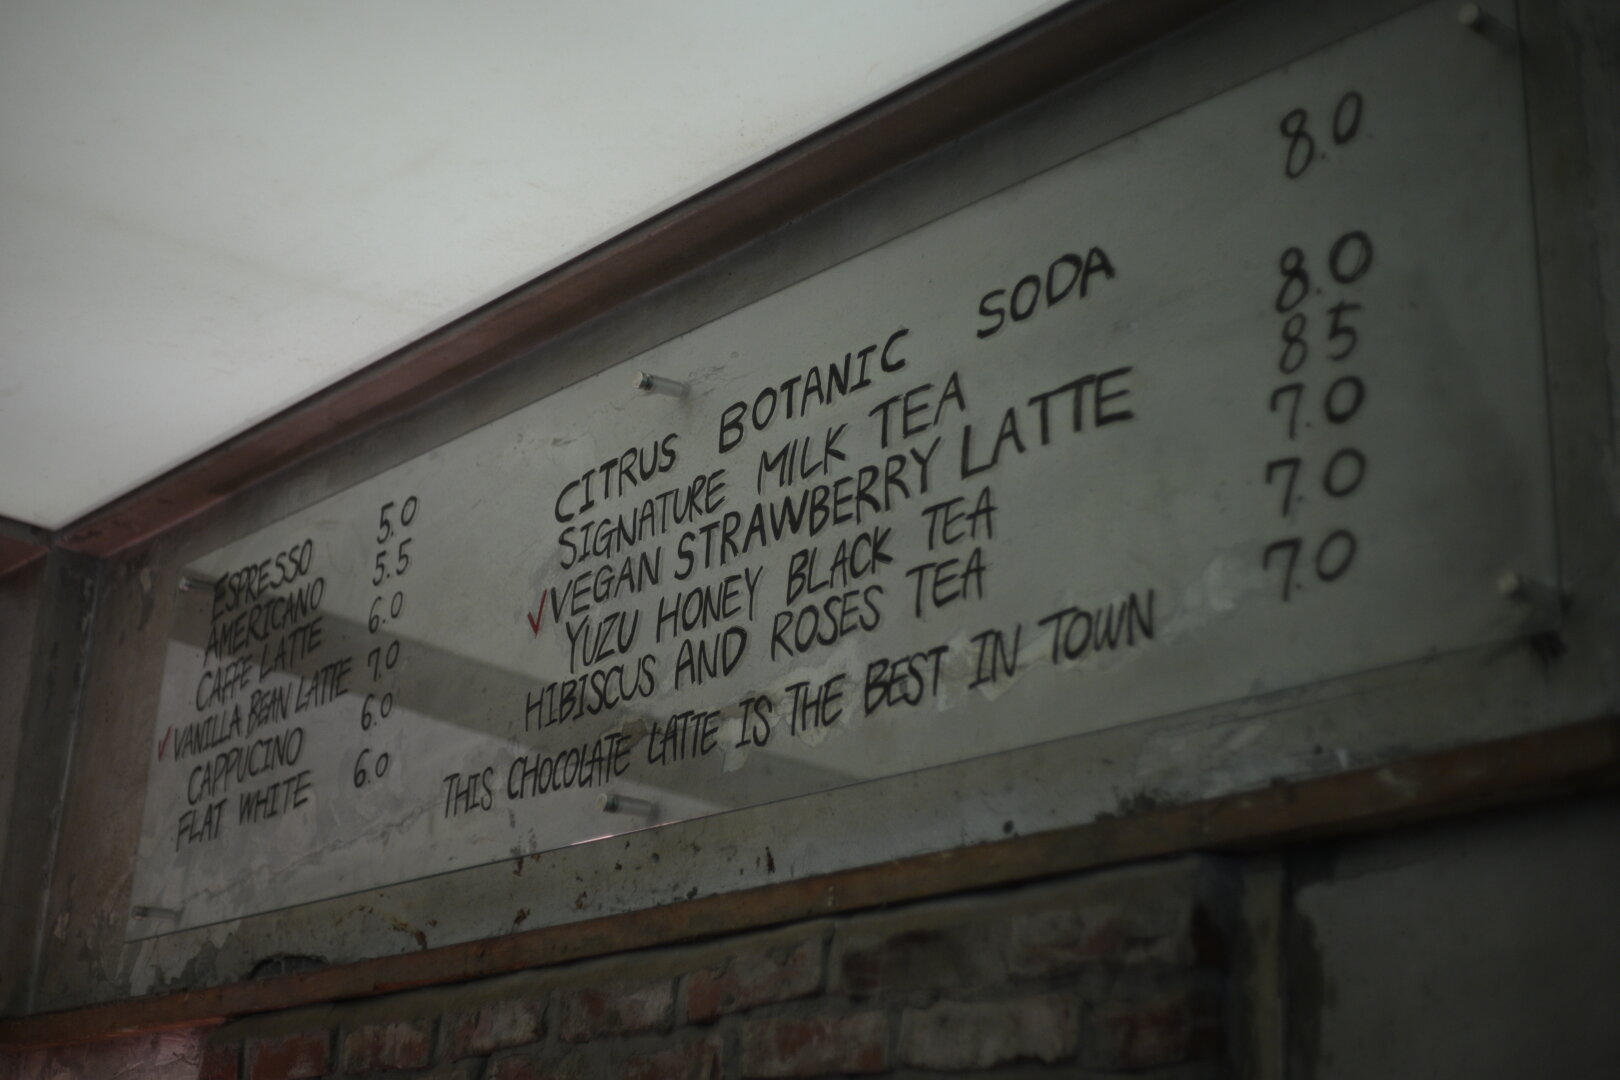 ESPRESSO 5.0
AMERICANO 5.5
CAFFE LATTE 6.0
✓VANILLA BEAN LATTE 7.0
CAPPUCINO 6.0
FLAT WHITE 6.0
CITRUS BOTANIC SODA 8.0
SIGNATURE MILK TEA 8.0
✓VEGAN STRAWBERRY LATTE 8.5
YUZU HONEY BLACK TEA 7.0
HIBISCUS AND ROSES TEA 7.0
THIS CHOCOLATE LATTE IS THE BEST IN TOWN 7.0